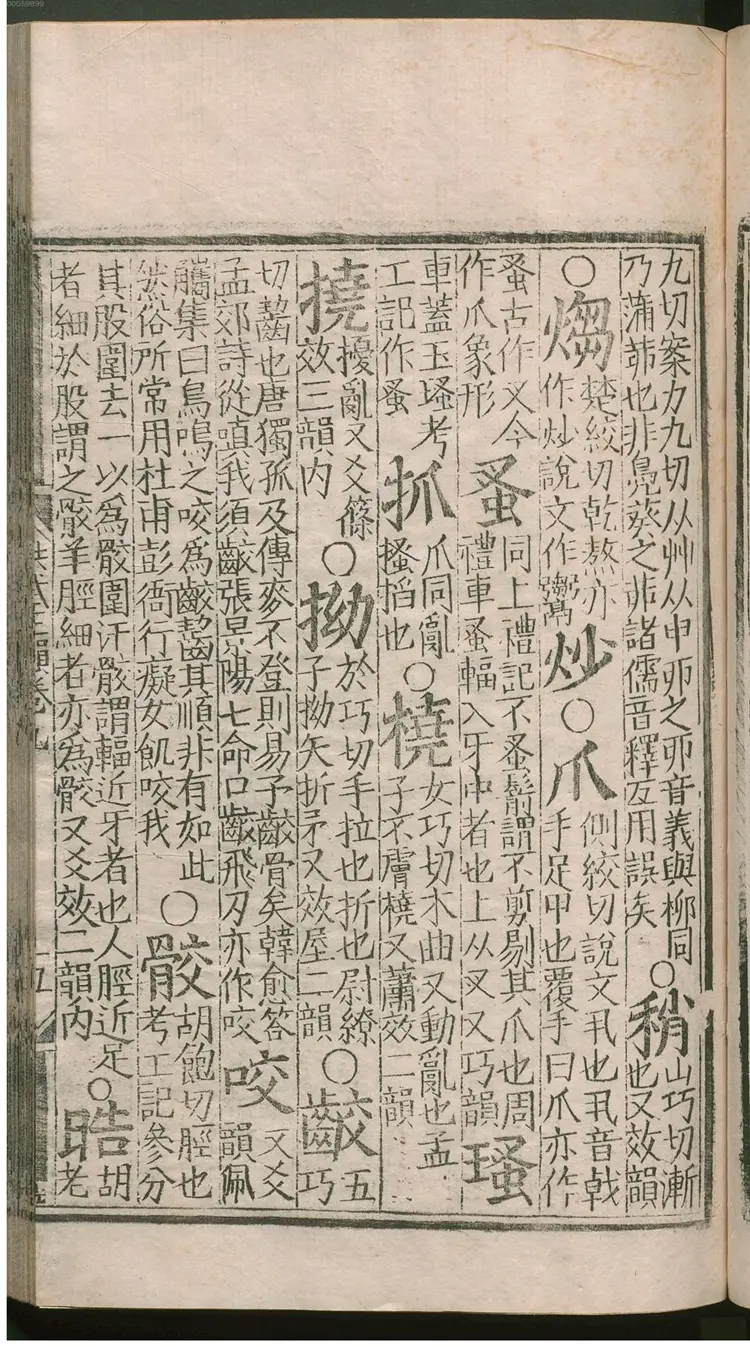 九切案力九切从艸从丣丣之丣音義與柳同○稍山巧切漸
乃蒲茆也非鳧葵之茆諸儒音釋互用誤矣也又效韻
○煼楚絞切乾熬亦作炒說文作䰞炒○爪側絞切說文丮也丮音戟手足甲也覆手曰爪亦作
蚤古作叉今作爪象形蚤同上禮記不蚤鬋謂不剪剔其爪也周禮車蚤輻入牙中者也上从叉又巧韻瑵
車蓋玉瑵考工記作蚤抓爪同亂搔搯也○橈女巧切木曲又動亂也孟子不膚橈又蕭效二韻
撓擾亂又爻篠效三韻內○拗於巧切手拉也折也尉繚子拗矢折矛又效屋二韻○齩五巧
切齧也唐獨孤及傳麥不登則易子齩骨矣韓愈答孟郊詩從嗔我須齩張景陽七命口齩飛刃亦作咬咬又爻韻佩
觿集曰鳥鳴之咬爲齩齧其順非有如此然俗所常用杜甫彭衙行癡女飢咬我○骹胡飽切脛也考工記參分
其股圍去一以爲骹圍汗骹謂輻近牙者也人脛近足者細於股謂之骹羊脛細者亦爲骹又爻效二韻內○晧胡老